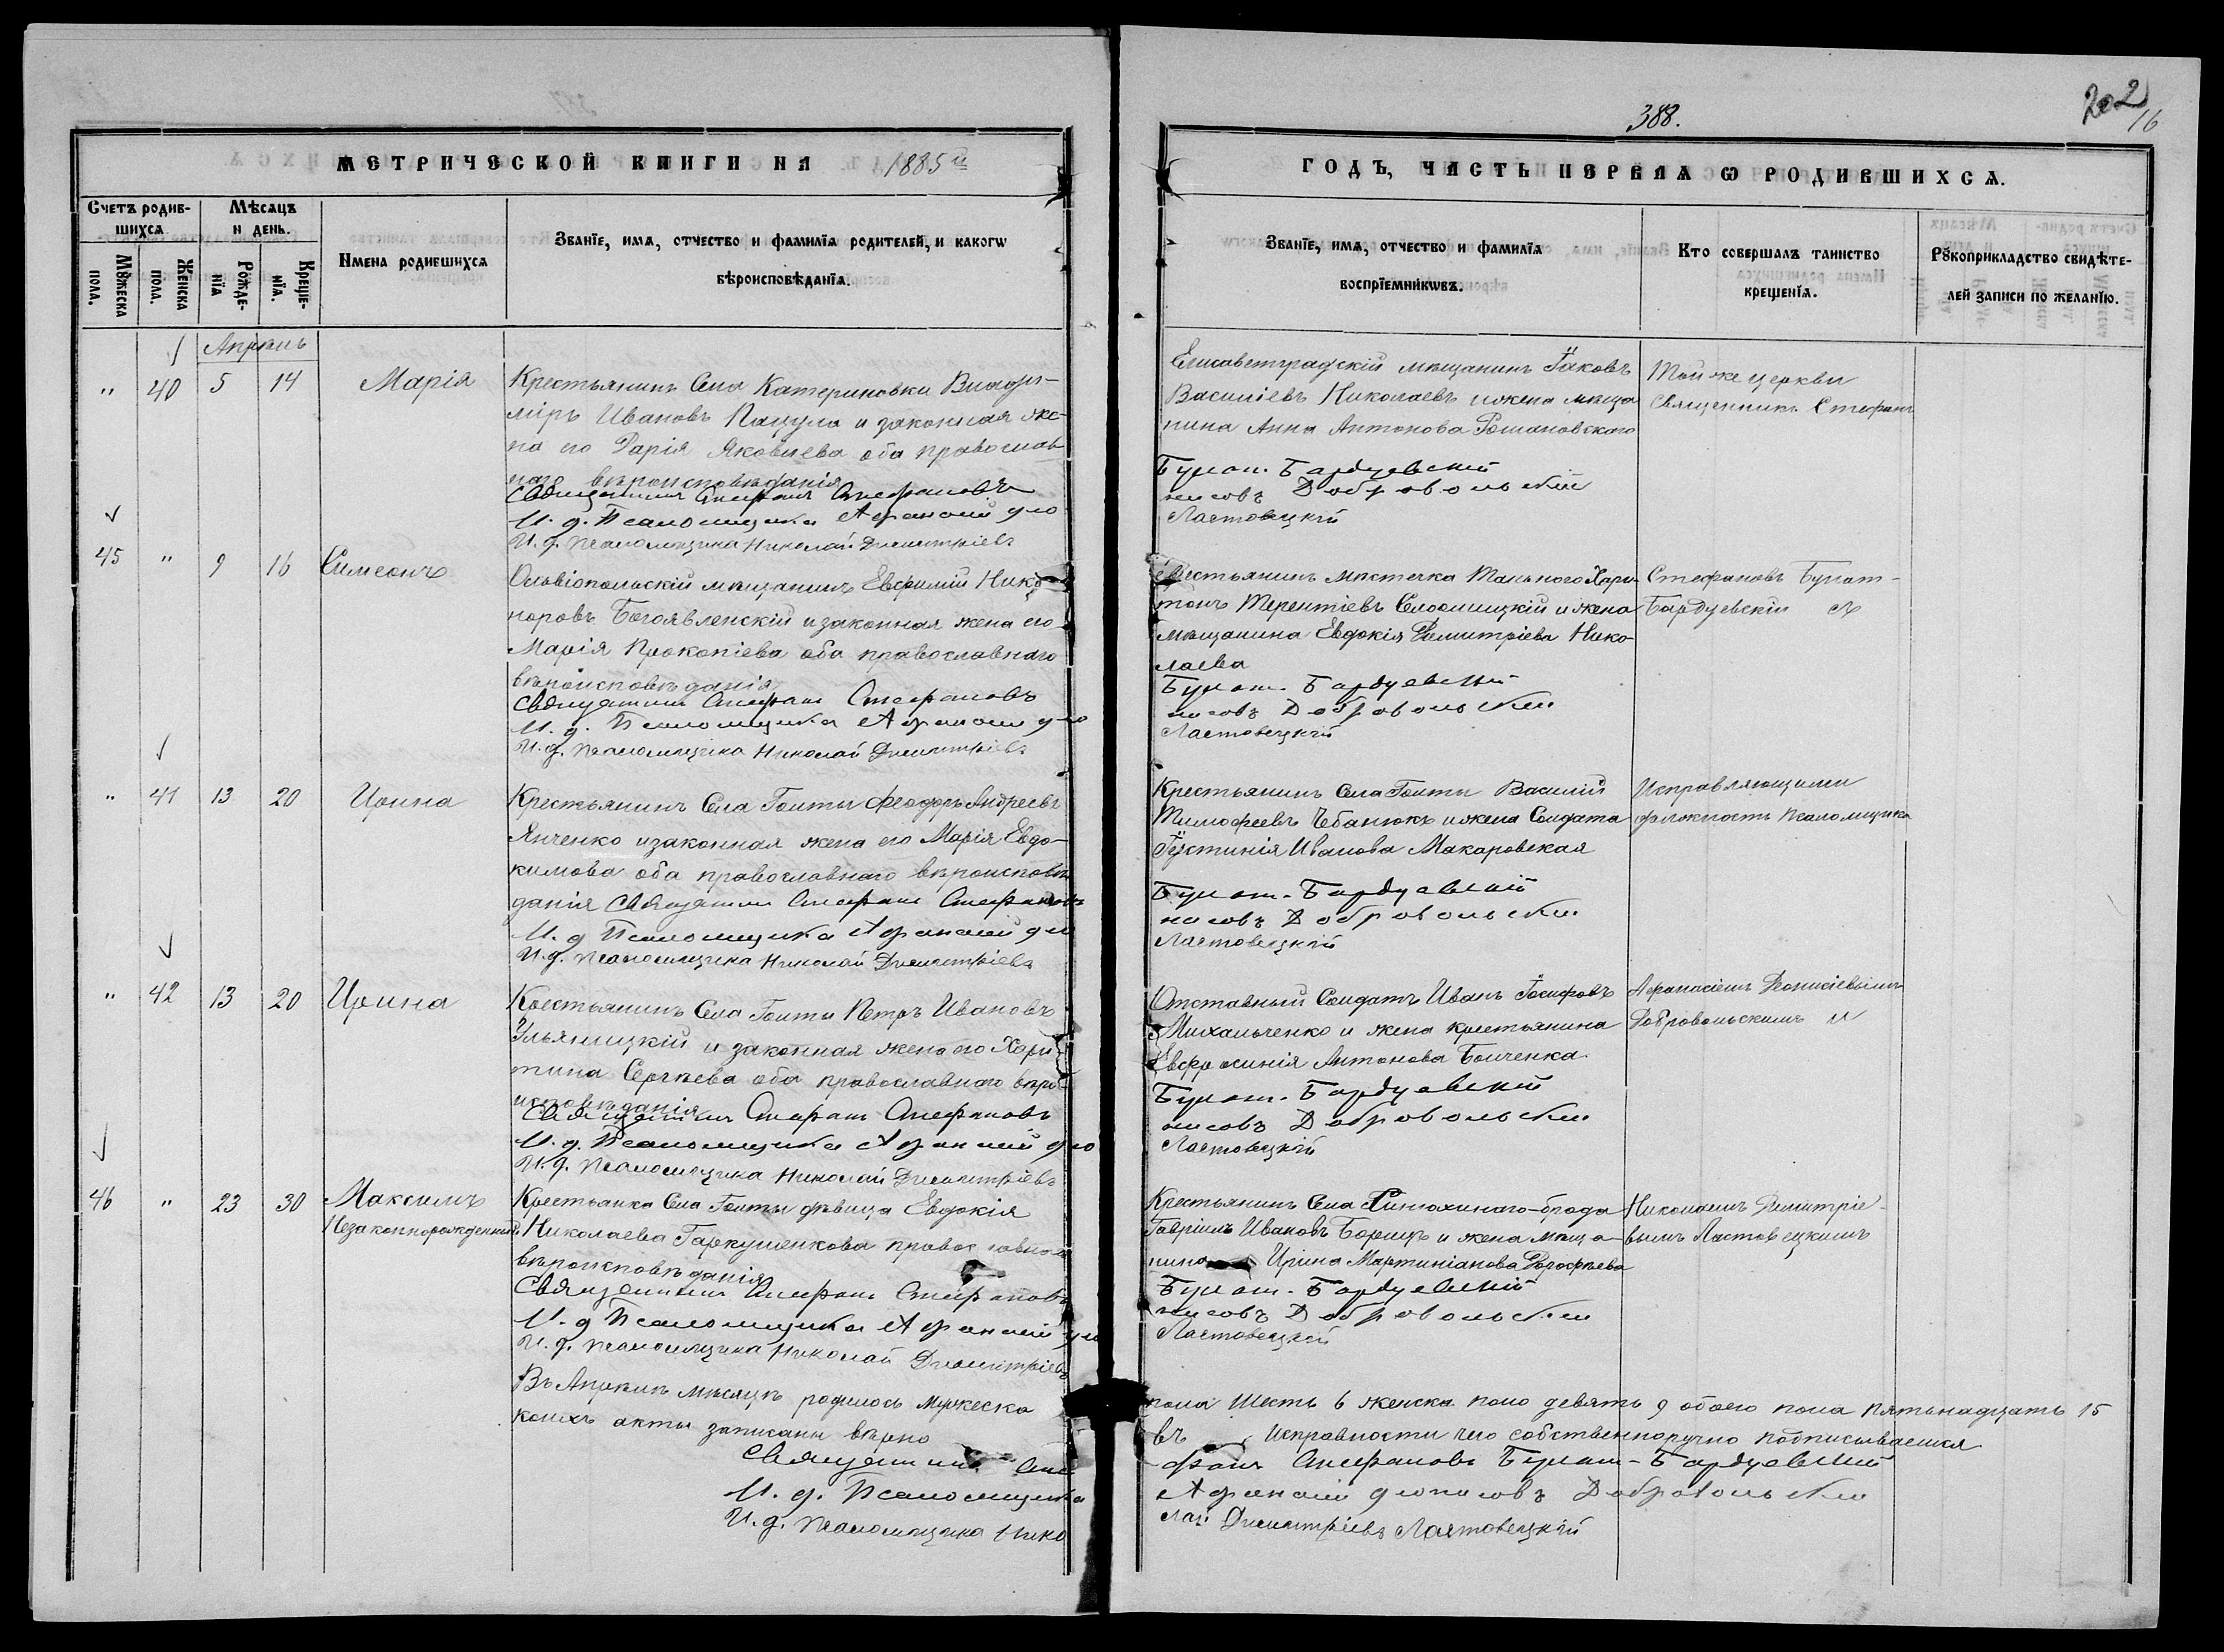 388.
202
16
МЕТРИЧЕСКОЙ КНИГИ НА 1885й
ГОДЪ, ЧАСТЬ ПЕРВАЯ Ѡ РОДИВШИХСѦ.
Счетъ родив-
шихсѧ
Мѣсѧцъ
и день.
Мꙋжеска
пола.
Женска
пола.
Рожде-
нїѧ
Креще-
нїѧ.
Имена родившихсѧ
Званїе, имѧ, отчество и фамилїѧ родителей, и какогѡ
вѣроисповѣданїѧ.
Званїе, имѧ, отчество и фамилїѧ
воспрїемникѡвъ.
Кто совершалъ таинство
крещенїѧ.
Рꙋкоприкладство свидѣте-
лей записи по желанїю.
Апрѣль
" 40 5 14 Марія
Крестьянинъ Села Катериновки Влади-
міръ Ивановъ Пацула и законная же-
на его Дарія Яковлева оба православ-
наго вѣроисповѣданія
Священникъ Стефанъ Стефановъ
И. д. Псаломщика Афанасій Дио
И. д. Псаломщика Николай Димитріевъ
Елисаветградскій мѣщанинъ Іаковъ
Васильевъ Николаевъ и жена мѣща
нина Анна Антонова Романовского
Булат. Бардуевскій
нисовъ Добровольскій
Ластовецкій
Той же церкви
Священникъ Стефанъ
45 " 9 16 Симеонъ
Ольвіопольскій мѣщанинъ Евфимій Ника
норовъ Богоявленскій и законная жена его
Марія Прокопіева оба православнаго
вѣроисповѣданія
Священникъ Стефанъ Стефановъ
И. д. Псаломщика Афанасій Дио
И. д. Псаломщика Николай Димитріевъ
Крестьянинъ мѣстечка Тального Хари
тонъ Терентіевъ и жена
мѣщанина Евдокія Димитріева Нико-
лаева
Булат. Бардуевскій
нисовъ Добровольскій
Ластовецкій
Стефановъ Булат-
Бардуевскій
" 41 13 20 Ирина
Крестьянинъ Села Голты Феодоръ Андреевъ
Янченко и законная жена его Марія Евдо-
кимова оба православнаго вѣроисповѣ
данія Священникъ Стефанъ Стефановъ
И. д. Псаломщика Афанасій Дио
И. д. Псаломщика Николай Димитріевъ
Крестьянинъ Села Голты Василій
Тимофеевъ Чебанюкъ и жена Солдата
Іустинія Иванова Макаровская
Булат. Бардуевскій
нисовъ Добровольскій
Ластовецкій
Исправляющими
должность Псаломщика
" 42 13 20 Ирина
Крестьянинъ Села Голты Петръ Ивановъ
Ульяницкій и законная жена его Хари
тина Сергѣева оба православнаго вѣро
исповѣданія
Священникъ Стефанъ Стефановъ
И. д. Псаломщика Афанасій Дио
И. д. Псаломщика Николай Димитріевъ
Отставный Солдатъ Иванъ Іосифовъ
Михальченко и жена крестьянина
Евфросинія Антонова Бойченка
Булат. Бардуевскій
нисовъ Добровольскій
Ластовецкій
Афанасіемъ Діонисіевымъ
Добровольскимъ и
46 " 23 30 Максимъ
Незаконнорожденный
Крестьянка Села Голты дѣвица Евдокія
Николаева Гаркушенкова православнаго
вѣроисповѣданія
Священникъ Стефанъ Стефановъ
И. д. Псаломщика Афанасій Дио
И. д. Псаломщика Николай Димитріевъ
Крестьянинъ Села Синюхиного-брода
Гавріилъ Ивановъ Борщъ и жена мѣща-
нина Ирина Мартиніанова Дорофѣева
Булат. Бардуевскій
нисовъ Добровольскій
Ластовецкій
Николаемъ Димитріе-
вымъ Ластовецкимъ
Въ Апрѣлѣ мѣсяцѣ родилось мужеска
пола Шесть 6 женска пола девять 9 обоего пола пятьнадцать 15
коихъ акты записаны вѣрно
въ исправности чего собственноручно подписываемся
Священникъ Сте
фанъ Стефановъ Булат-Бардуевскій
И. д. Псаломщика
Афанасій Дионисовъ Добровольскій
И. д. Псаломщика Нико
лай Димитріевъ Ластовецкій